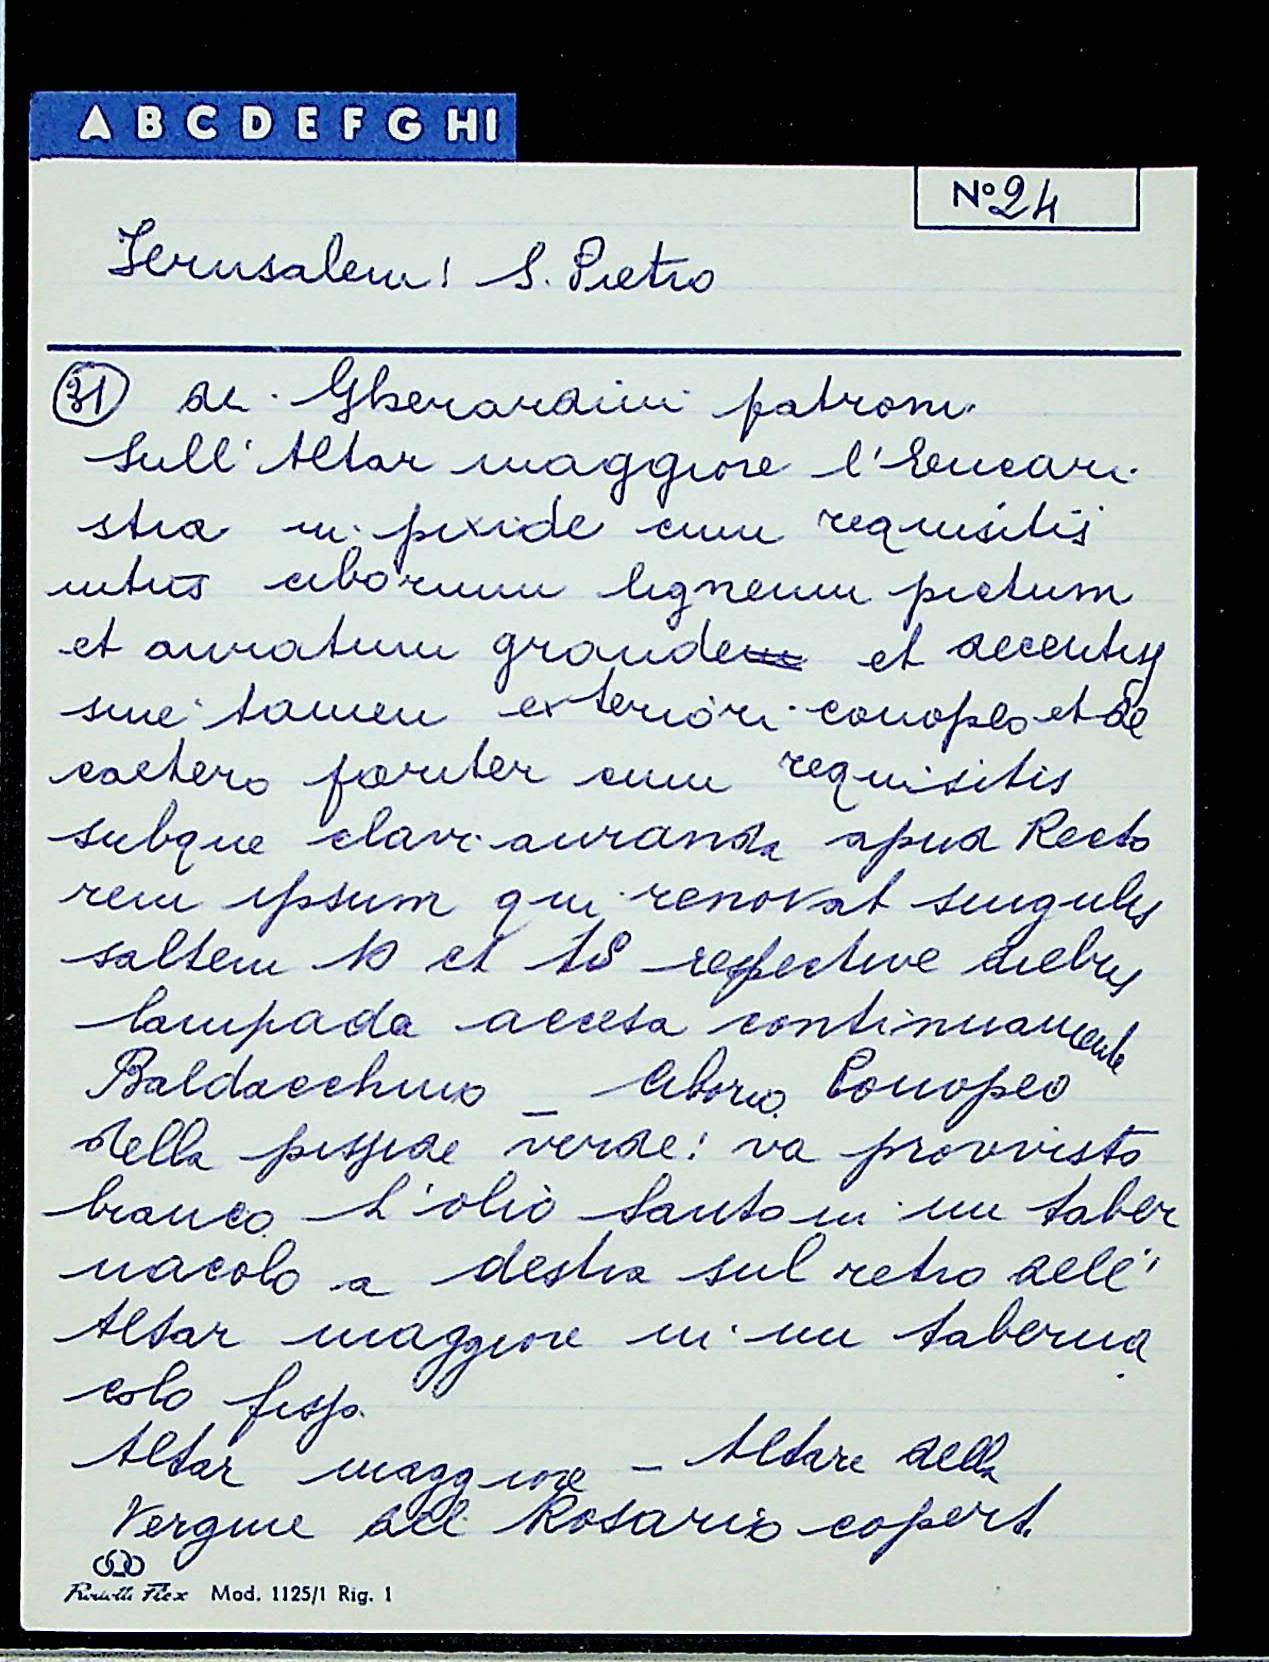 A B C D E F G H I
Nº 24
Jerusalem: S. Pietro
31 de Gherardini patroni
Sull'Altar maggiore l'Eucari
stia in pixide cum requisitis
intus ciborium ligneum pictum
et auratum grande et decentis
sine tamen exteriori conopeo et de
caetero pariter cum requisitis
subque clavi auranda apud Recto
rem ipsum qui renovat singulis
saltem 10 et 15 respective diebus
lampada accesa continuamente
Baldacchino _ Ciborio. Conopeo
della pisside verde: va provvisto
bianco. L'olio Santo in un taber
nacolo a destra sul retro dell'
Altar maggiore in un taberna
colo
Altar maggiore – Altare della
Vergine del Rosario copert.
Mod. 1125/1 Rig. 1